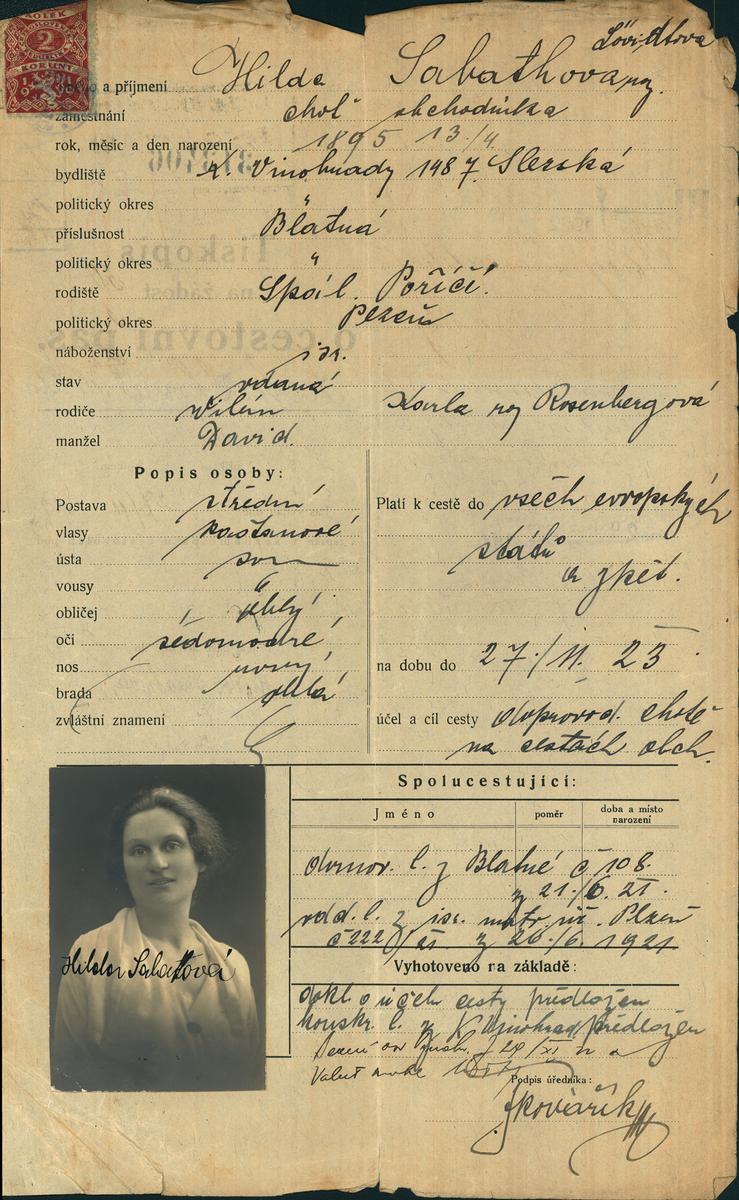 KOLEK
2
KORUNY
Lövidtova
a příjmení Hilda Sabathova roz.
zaměstnání choť obchodníka
rok, měsíc a den narození 1895 13./4.
bydliště K. Vinohrady 1487. Slezská
politický okres "
příslušnost Blatná
politický okres "
rodiště Spál. Poříčí.
politický okres Plzeň
náboženství isr.
stav vdaná
rodiče Vilém Karla roz Rosenbergová
manžel David.
Popis osoby:
Postava střední
vlasy kaštanové
ústa
vousy "
obličej oblý
oči šedomodré
nos rovný
brada oblá
zvláštní znamení
Platí k cestě do všech evropských
států
a zpět.
na dobu do 27./11. 23
účel a cíl cesty doprovod. chotě
na cestách obch.
Hilda Sabathová
Spolucestující:
Jméno poměr doba a místo narození
domov. l. z Blatné č 108.
z 21./6. 21.
odd. l. z isr. matr. Plzeň
č 222/21 z 26./6. 1921
Vyhotoveno na základě:
dokl o účelu cesty předložen
konskr. l. z K Vinohrad předložen
Podpis úředníka:
Škovařík